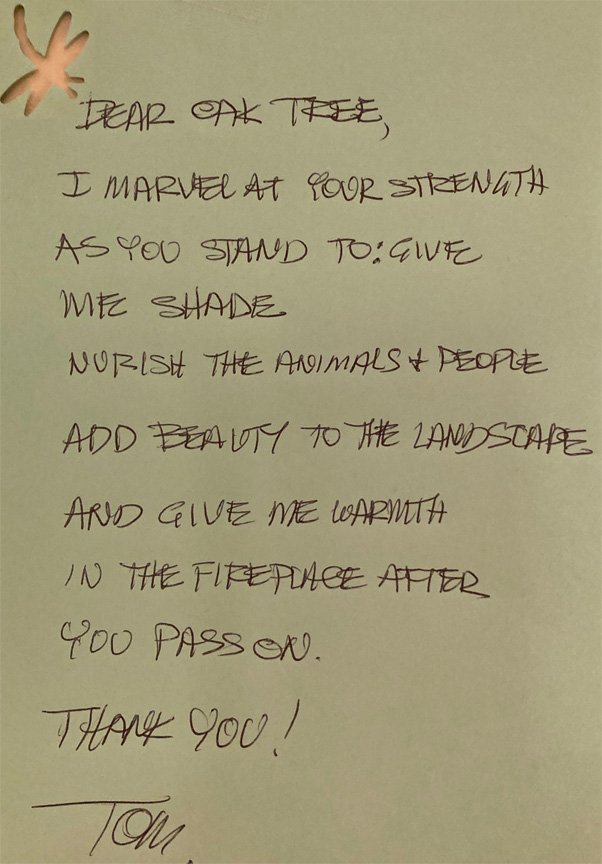 DEAR OAK TREE,
I MARVEL AT YOUR STRENGTH
AS YOU STAND TO: GIVE
ME SHADE
NURISH THE ANIMALS & PEOPLE
ADD BEAUTY TO THE LANDSCAPE
AND GIVE ME WARMTH
IN THE FIREPLACE AFTER
YOU PASS ON.
THANK YOU!
TOM